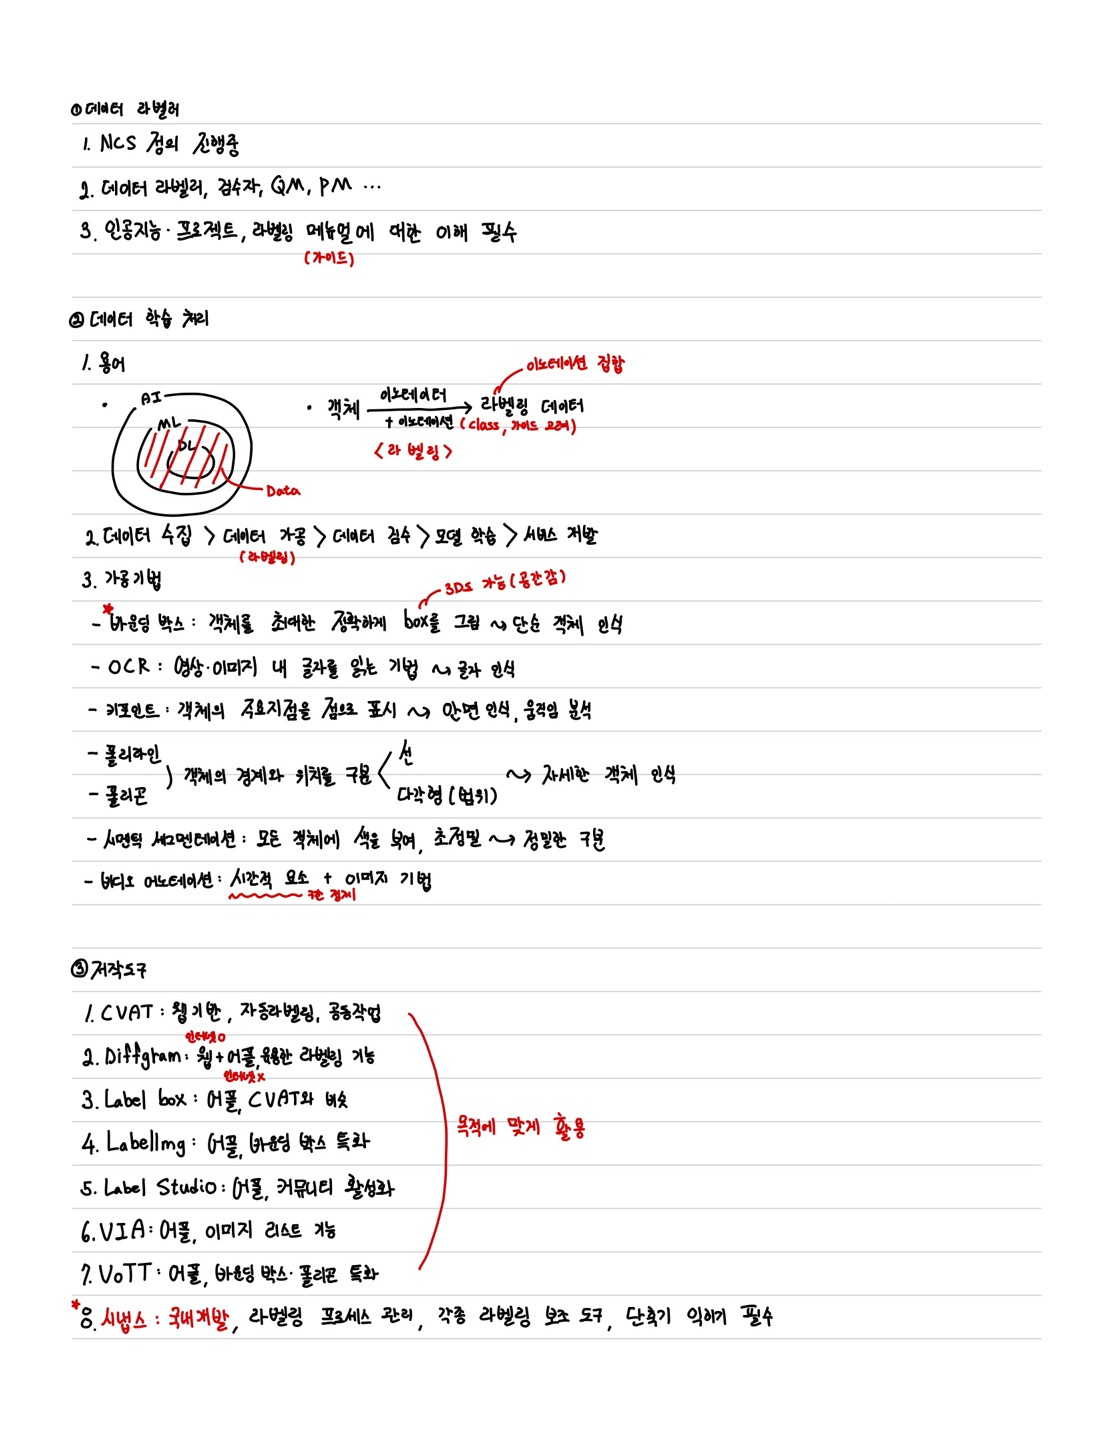 ① 데이터 라벨러
1. NCS 정의 진행중
2. 데이터 라벨러, 검수자, QM, PM ...
3. 인공지능·프로젝트, 라벨링 메뉴얼에 대한 이해 필수
(가이드)
② 데이터 학습 처리
1. 용어
이노테이션 집합
· AI
ML
DL
Data
· 객체 이노테이터 → 라벨링 데이터
+ 이노테이션 (class, 가이드 고려)
<라벨링>
2. 데이터 수집 > 데이터 가공 > 데이터 검수 > 모델 학습 > 서비스 개발
(라벨링)
3. 가공기법
3D도 가능(공간감)
* - 바운딩 박스 : 객체를 최대한 정확하게 box를 그림 ~> 단순 객체 인식
- OCR : 영상·이미지 내 글자를 읽는 기법 ~> 글자 인식
- 키포인트 : 객체의 주요지점을 점으로 표시 ~> 안면 인식, 움직임 분석
- 폴리라인
- 폴리곤
) 객체의 경계와 위치를 구분 < 선
다각형(범위)
~> 자세한 객체 인식
- 시멘틱 세그멘테이션 : 모든 객체에 색을 부여, 초정밀 ~> 정밀한 구분
- 비디오 어노테이션 : 시간적 요소 + 이미지 기법
구간 정제
③ 저작도구
1. CVAT : 웹기반, 자동라벨링, 공동작업
인터넷o
2. Diffgram : 웹+어플, 유용한 라벨링 기능
인터넷x
3. Label box : 어플, CVAT와 비슷
4. LabelImg : 어플, 바운딩 박스 특화
5. Label Studio : 어플, 커뮤니티 활성화
6. VIA : 어플, 이미지 리스트 기능
7. VoTT : 어플, 바운딩 박스·폴리곤 특화
목적에 맞게 활용
* 8. 시냅스 : 국내개발, 라벨링 프로세스 관리, 각종 라벨링 보조 도구, 단축기 익히기 필수